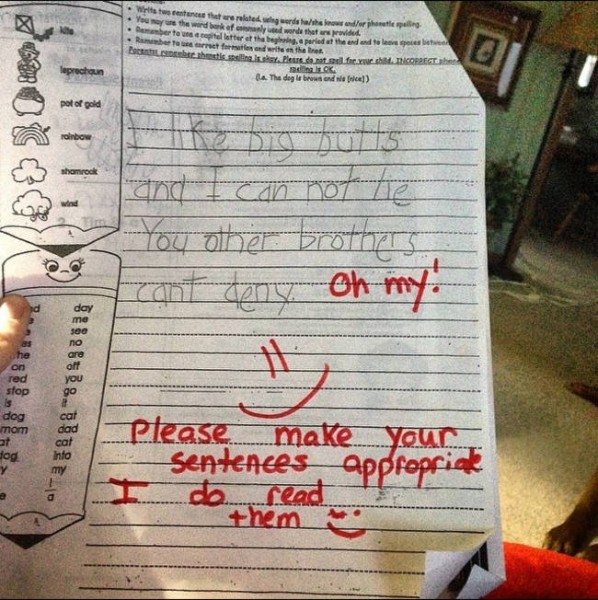 Write two sentences that are related, using words he/she knows and/or phonetic spelling.
You may use the word bank of commonly used words that are provided.
Remember to use a capital letter at the beginning, a period at the end and to leave spaces between
Remember to use correct formation and write on the lines.
Parents: remember phonetic spelling is okay. Please do not spell for your child. INCORRECT
spelling is OK.
(i.e. The dog is brown and nis (nice))
kite
leprechaun
pot of gold
rainbow
shamrock
wind
I like big butts
and I can not lie
You other brothers
cant deny. Oh my!
Please make your
sentences appropriate
I do read
them
day
me
see
no
he are
on off
red you
stop go
is it
dog cat
mom dad
at cat
into
my
I
a